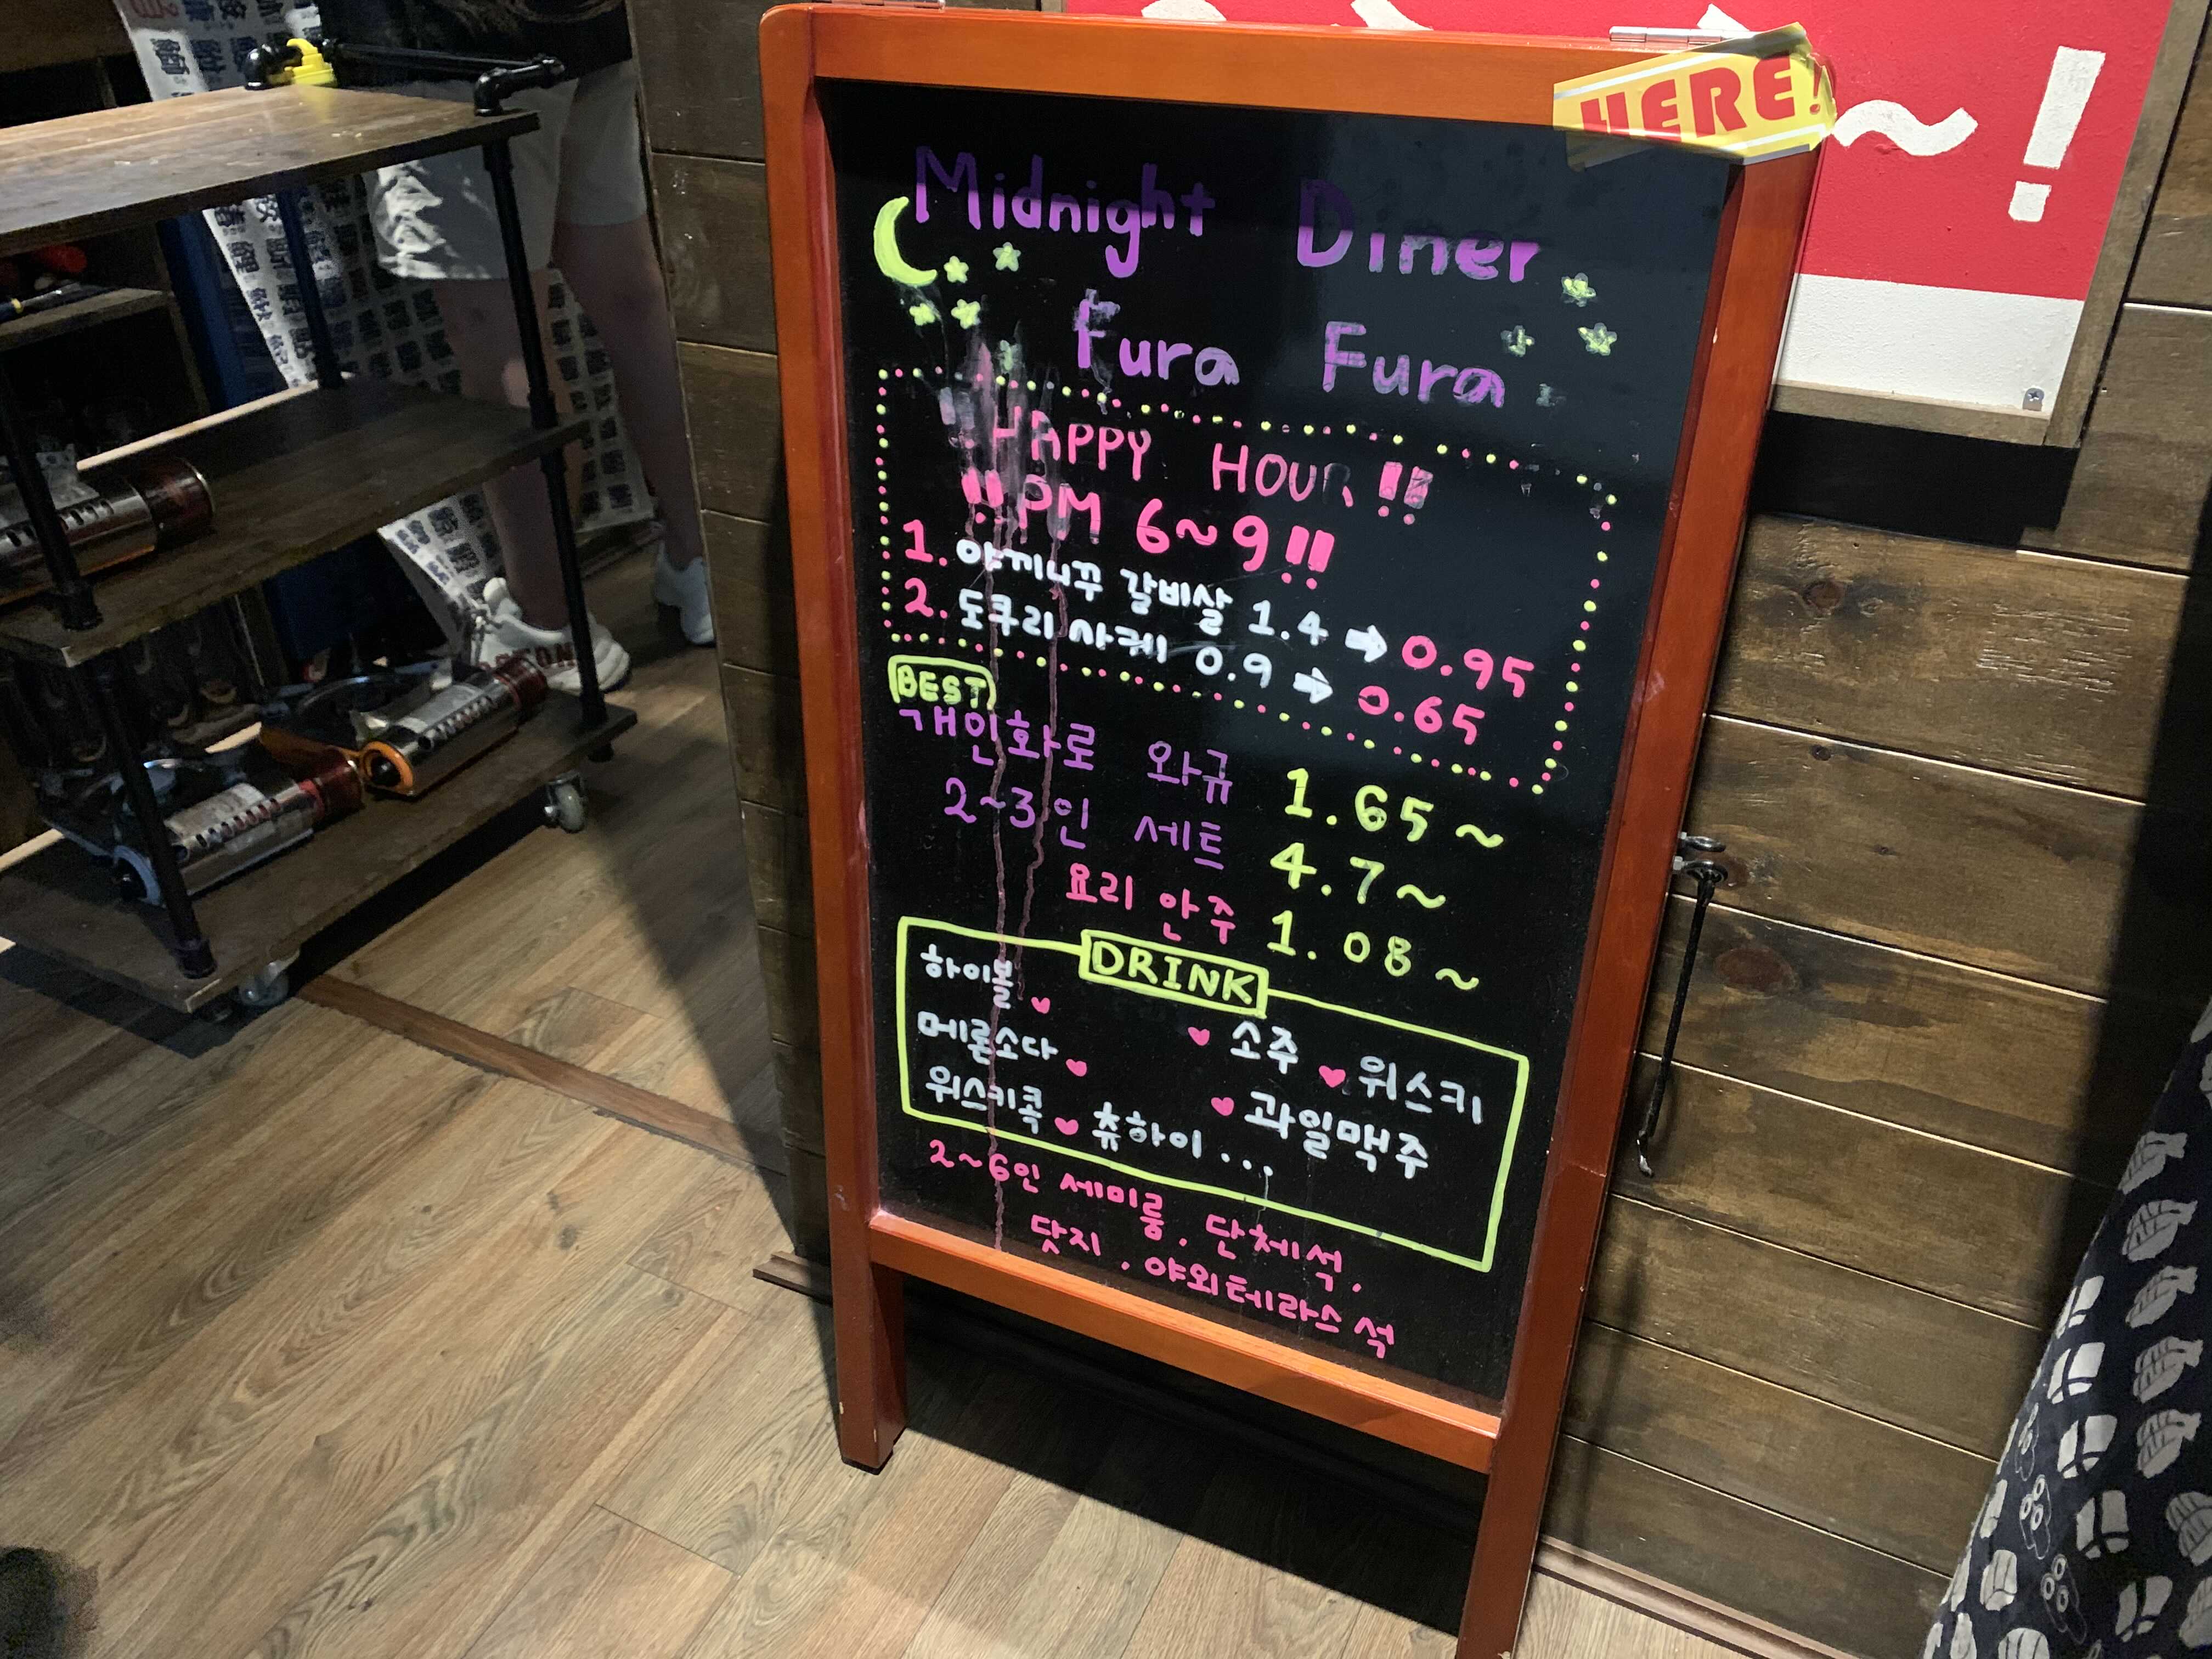 HERE!
~!
Midnight Diner
Fura Fura
HAPPY HOUR!!
!!PM 6~9!!
1. 야끼니꾸 갈비살 1.4 → 0.95
2. 도쿠리 사케 0.9 → 0.65
BEST
개인화로 와규 1.65~
2~3인 세트 4.7~
요리 안주 1.08~
DRINK
하이볼 ♥
메론소다 ♥ ♥ 소주 ♥ 위스키
위스키콕 ♥ 츄하이... ♥ 과일맥주
2~6인 세미룸, 단체석,
닷지, 야외테라스석